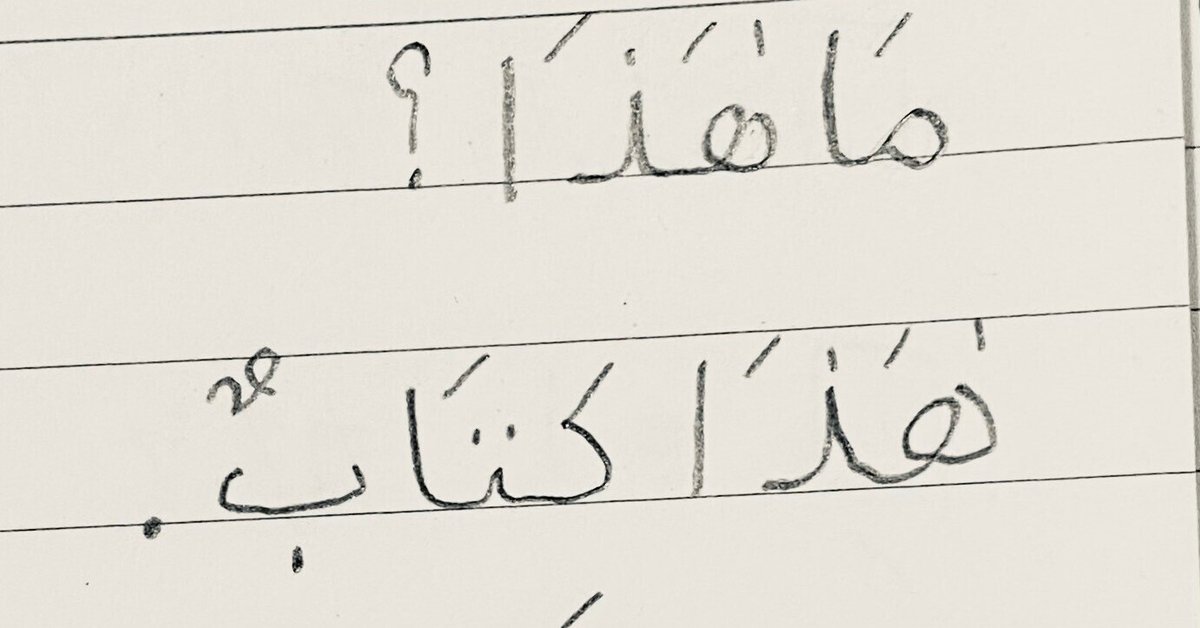 مَا هَٰذَا ؟
هَٰذَا كتَابٌ .